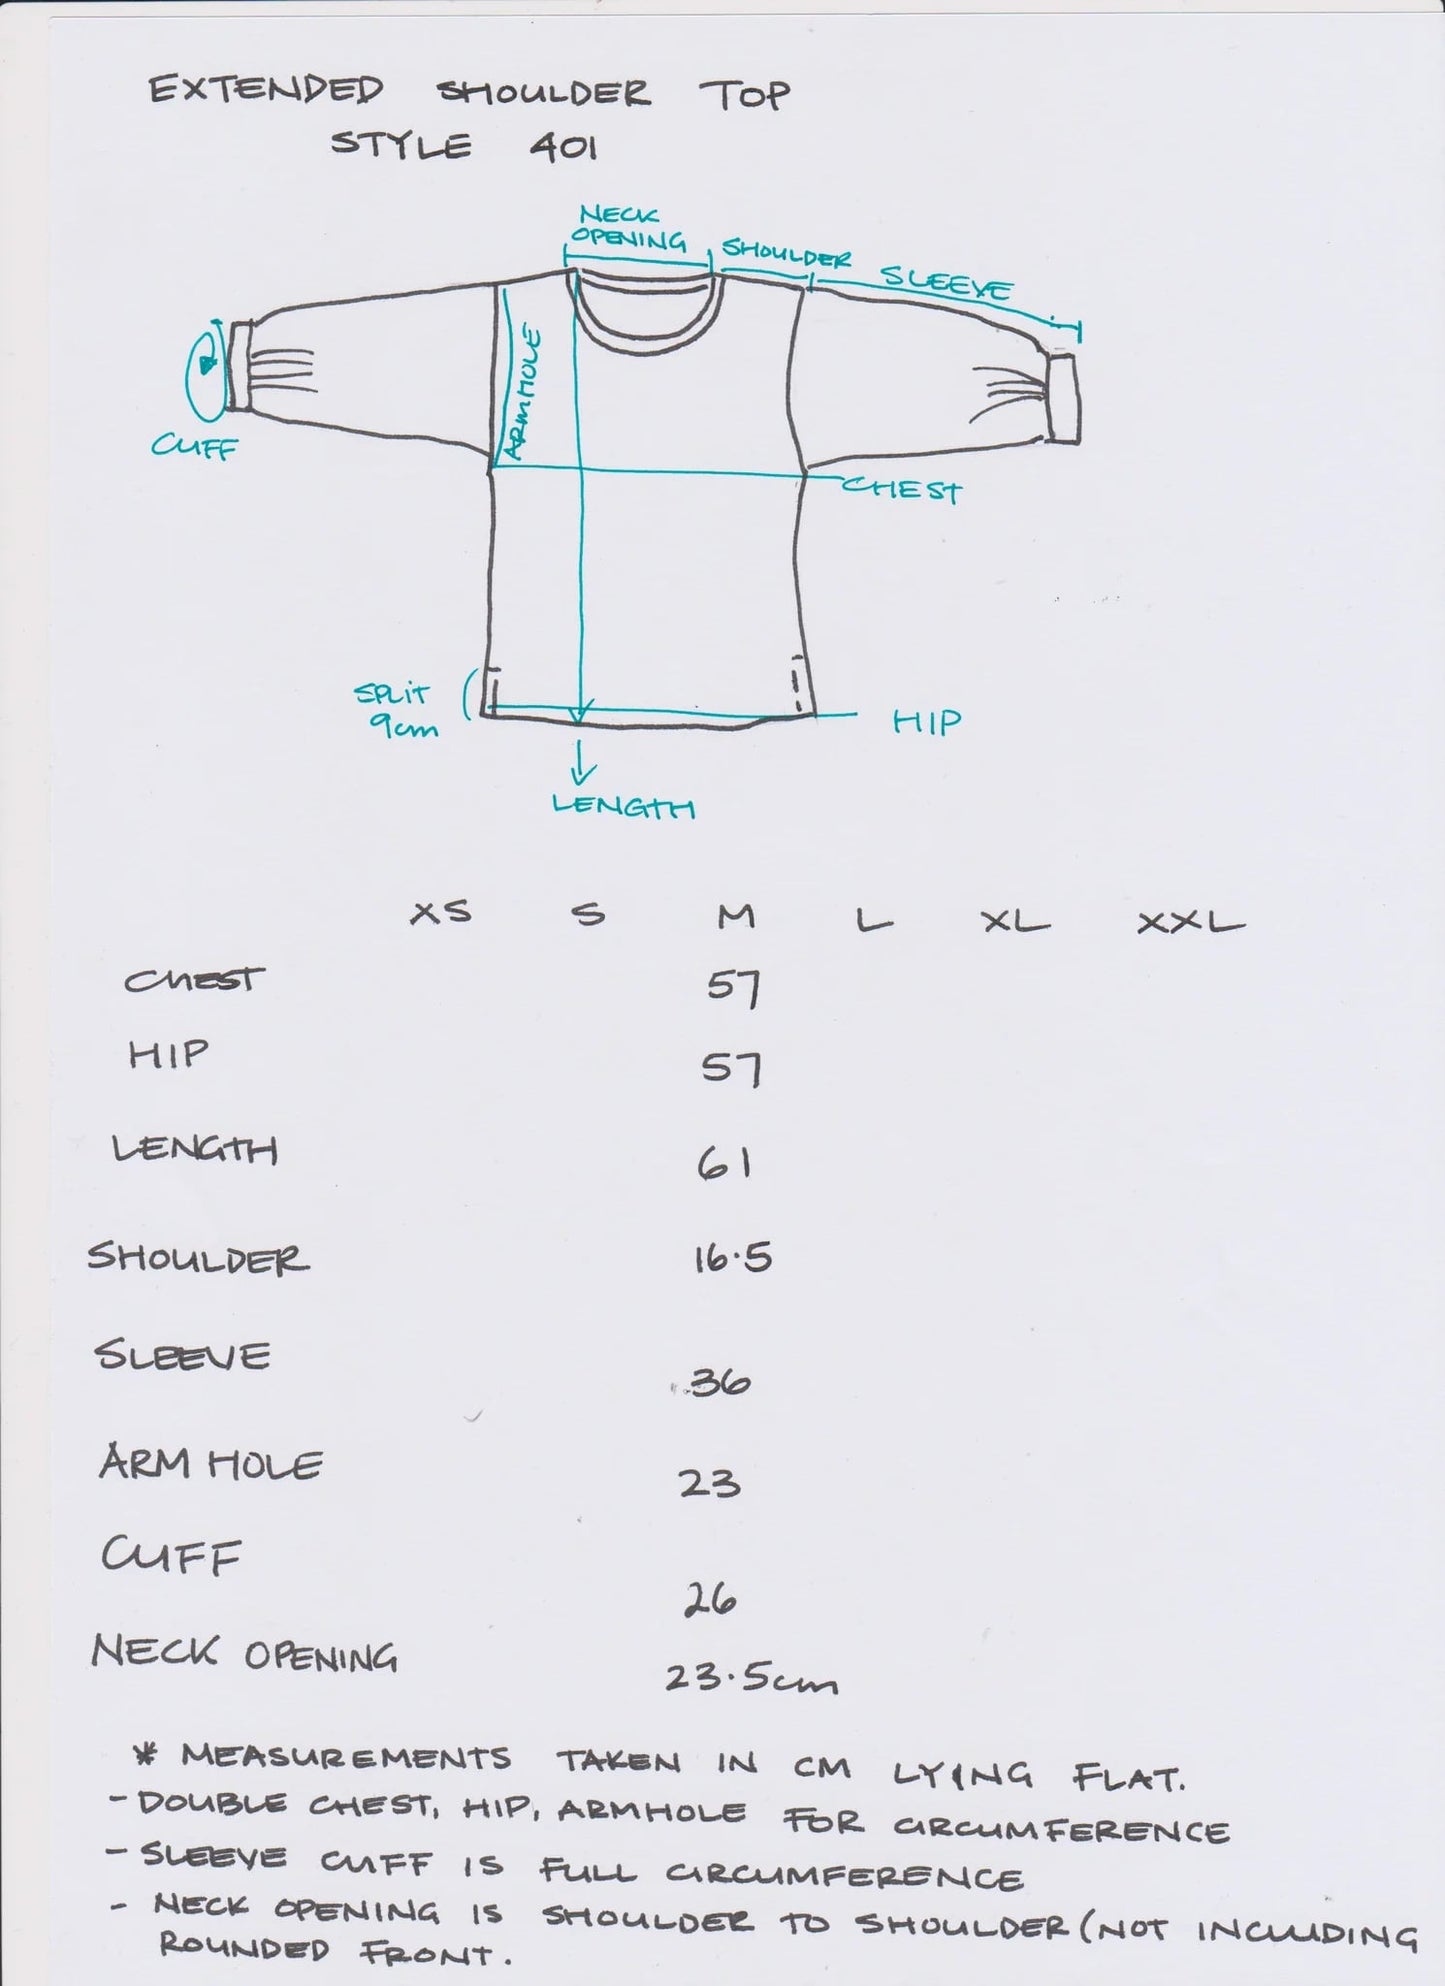 EXTENDED SHOULDER TOP
STYLE 401
NECK
OPENING
SHOULDER
SLEEVE
ARMHOLE
CUFF
CHEST
SPLIT
9cm
HIP
LENGTH
XS S M L XL XXL
CHEST 57
HIP 57
LENGTH 61
SHOULDER 16.5
SLEEVE 36
ARM HOLE 23
CUFF 26
NECK OPENING 23.5cm
* MEASUREMENTS TAKEN IN CM LYING FLAT.
- DOUBLE CHEST, HIP, ARMHOLE FOR CIRCUMFERENCE
- SLEEVE CUFF IS FULL CIRCUMFERENCE
- NECK OPENING IS SHOULDER TO SHOULDER (NOT INCLUDING
ROUNDED FRONT.